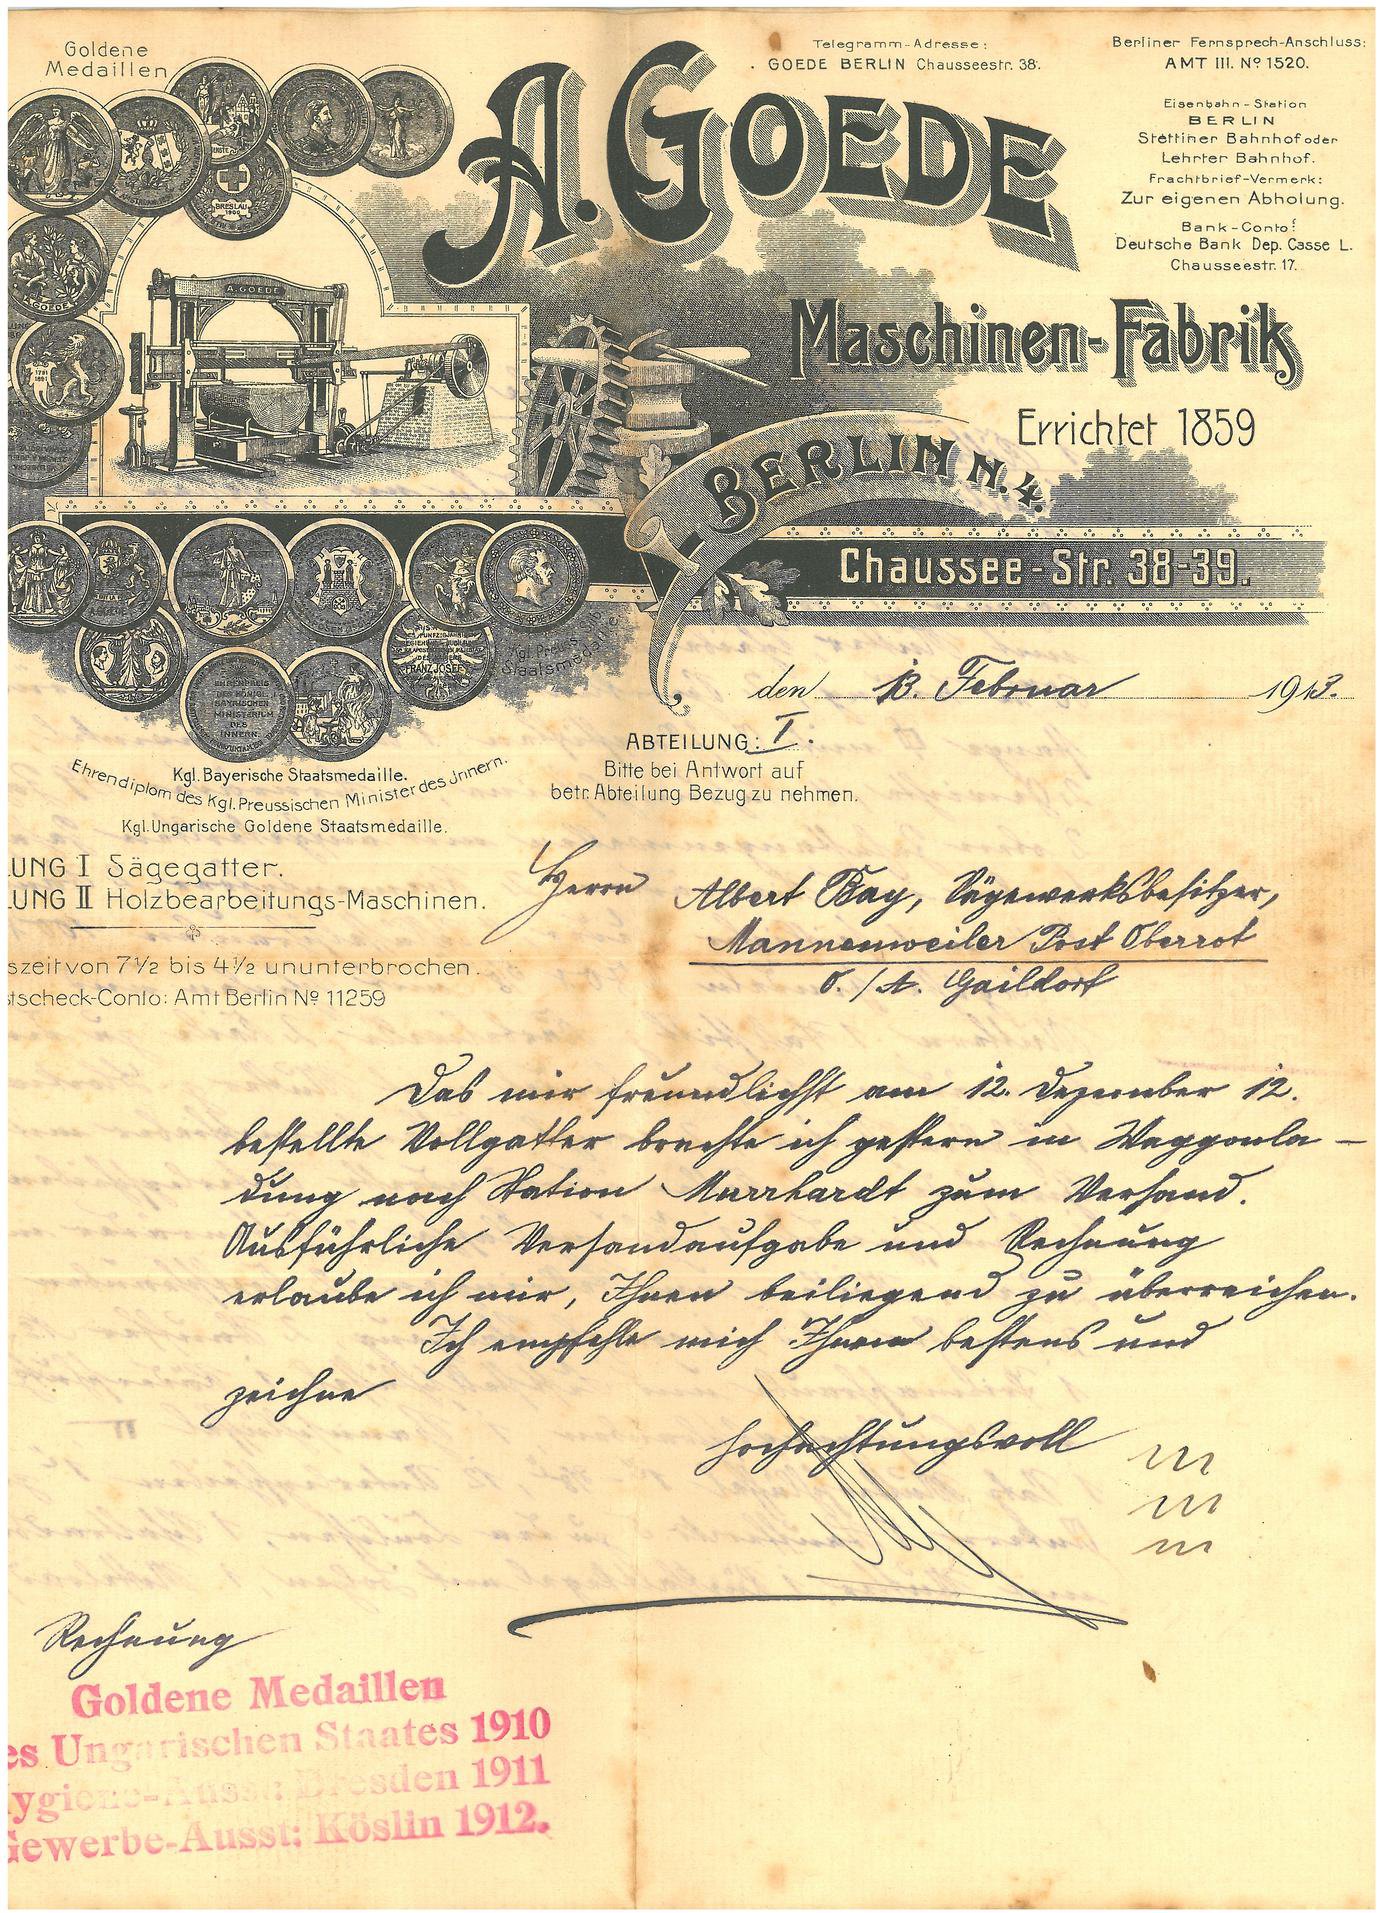 Goldene
Medaillen
Telegramm-Adresse:
GOEDE BERLIN Chausseestr. 38.
Berliner Fernsprech-Anschluss:
AMT III. Nº 1520.
Eisenbahn-Station
BERLIN
Stettiner Bahnhof oder
Lehrter Bahnhof.
Frachtbrief-Vermerk:
Zur eigenen Abholung.
Bank-Conto:
Deutsche Bank Dep. Casse L.
Chausseestr. 17.
A. GOEDE
Maschinen-Fabrik
Errichtet 1859
BERLIN N. 4.
Chaussee-Str. 38-39.
A. GOEDE
BRESLAU
1900
A. GOEDE
1791
1891
GOEDE
FRANZ JOSEF
EHRENPREIS
DES KÖNIGL
BAYRISCHEN
MINISTERIUM
DES
INNERN
Kgl. Preuss.
Staatsmedaille
den 13. Februar 1913.
ABTEILUNG: I.
Bitte bei Antwort auf
betr. Abteilung Bezug zu nehmen.
Kgl. Bayerische Staatsmedaille.
Ehrendiplom des Kgl. Preussischen Minister des Jnnern.
Kgl. Ungarische Goldene Staatsmedaille.
LUNG I Sägegatter.
LUNG II Holzbearbeitungs-Maschinen.
szeit von 7½ bis 4½ ununterbrochen.
stscheck-Conto: Amt Berlin Nº 11259
Herrn Albert Bay, Sägewerksbesitzer,
Mannenweiler Post Oberrot
O./A. Gaildorf
Das mir freundlichst am 12. Dezember 12.
bestellte Vollgatter brachte ich gestern in Waggonla-
dung nach Station Murrhardt zum Versand.
Ausführliche Versandaufgabe und Rechnung
erlaube ich mir, Ihnen beiliegend zu überreichen.
Ich empfehle mich Ihnen bestens und
zeichne
hochachtungsvoll
Rechnung
Goldene Medaillen
es Ungarischen Staates 1910
ygiene-Ausst: Dresden 1911
Gewerbe-Ausst: Köslin 1912.